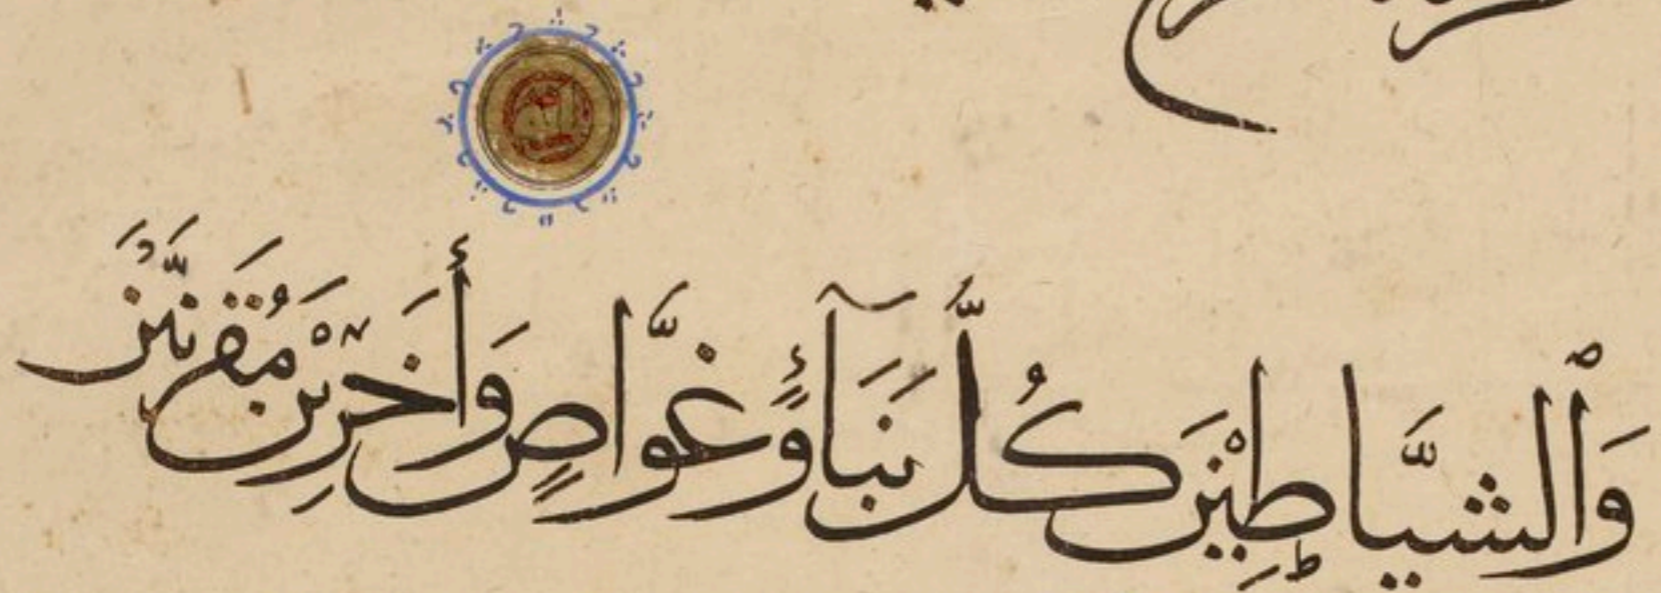 وَٱلشيَّاطِيْنَ كُلَّ بَنَآءٍ وَغَوَّاصٍ وَأَخَرِيْنَ مُقَرَّنِيْنَ